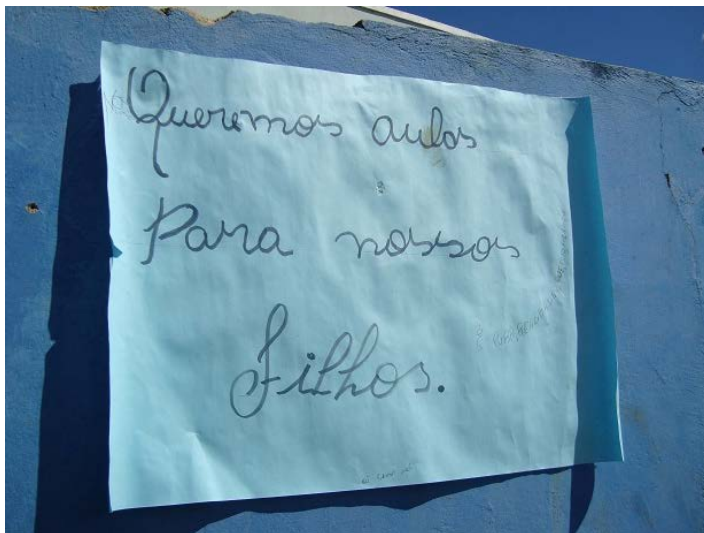 Queremos aulas
Para nossos
Filhos.